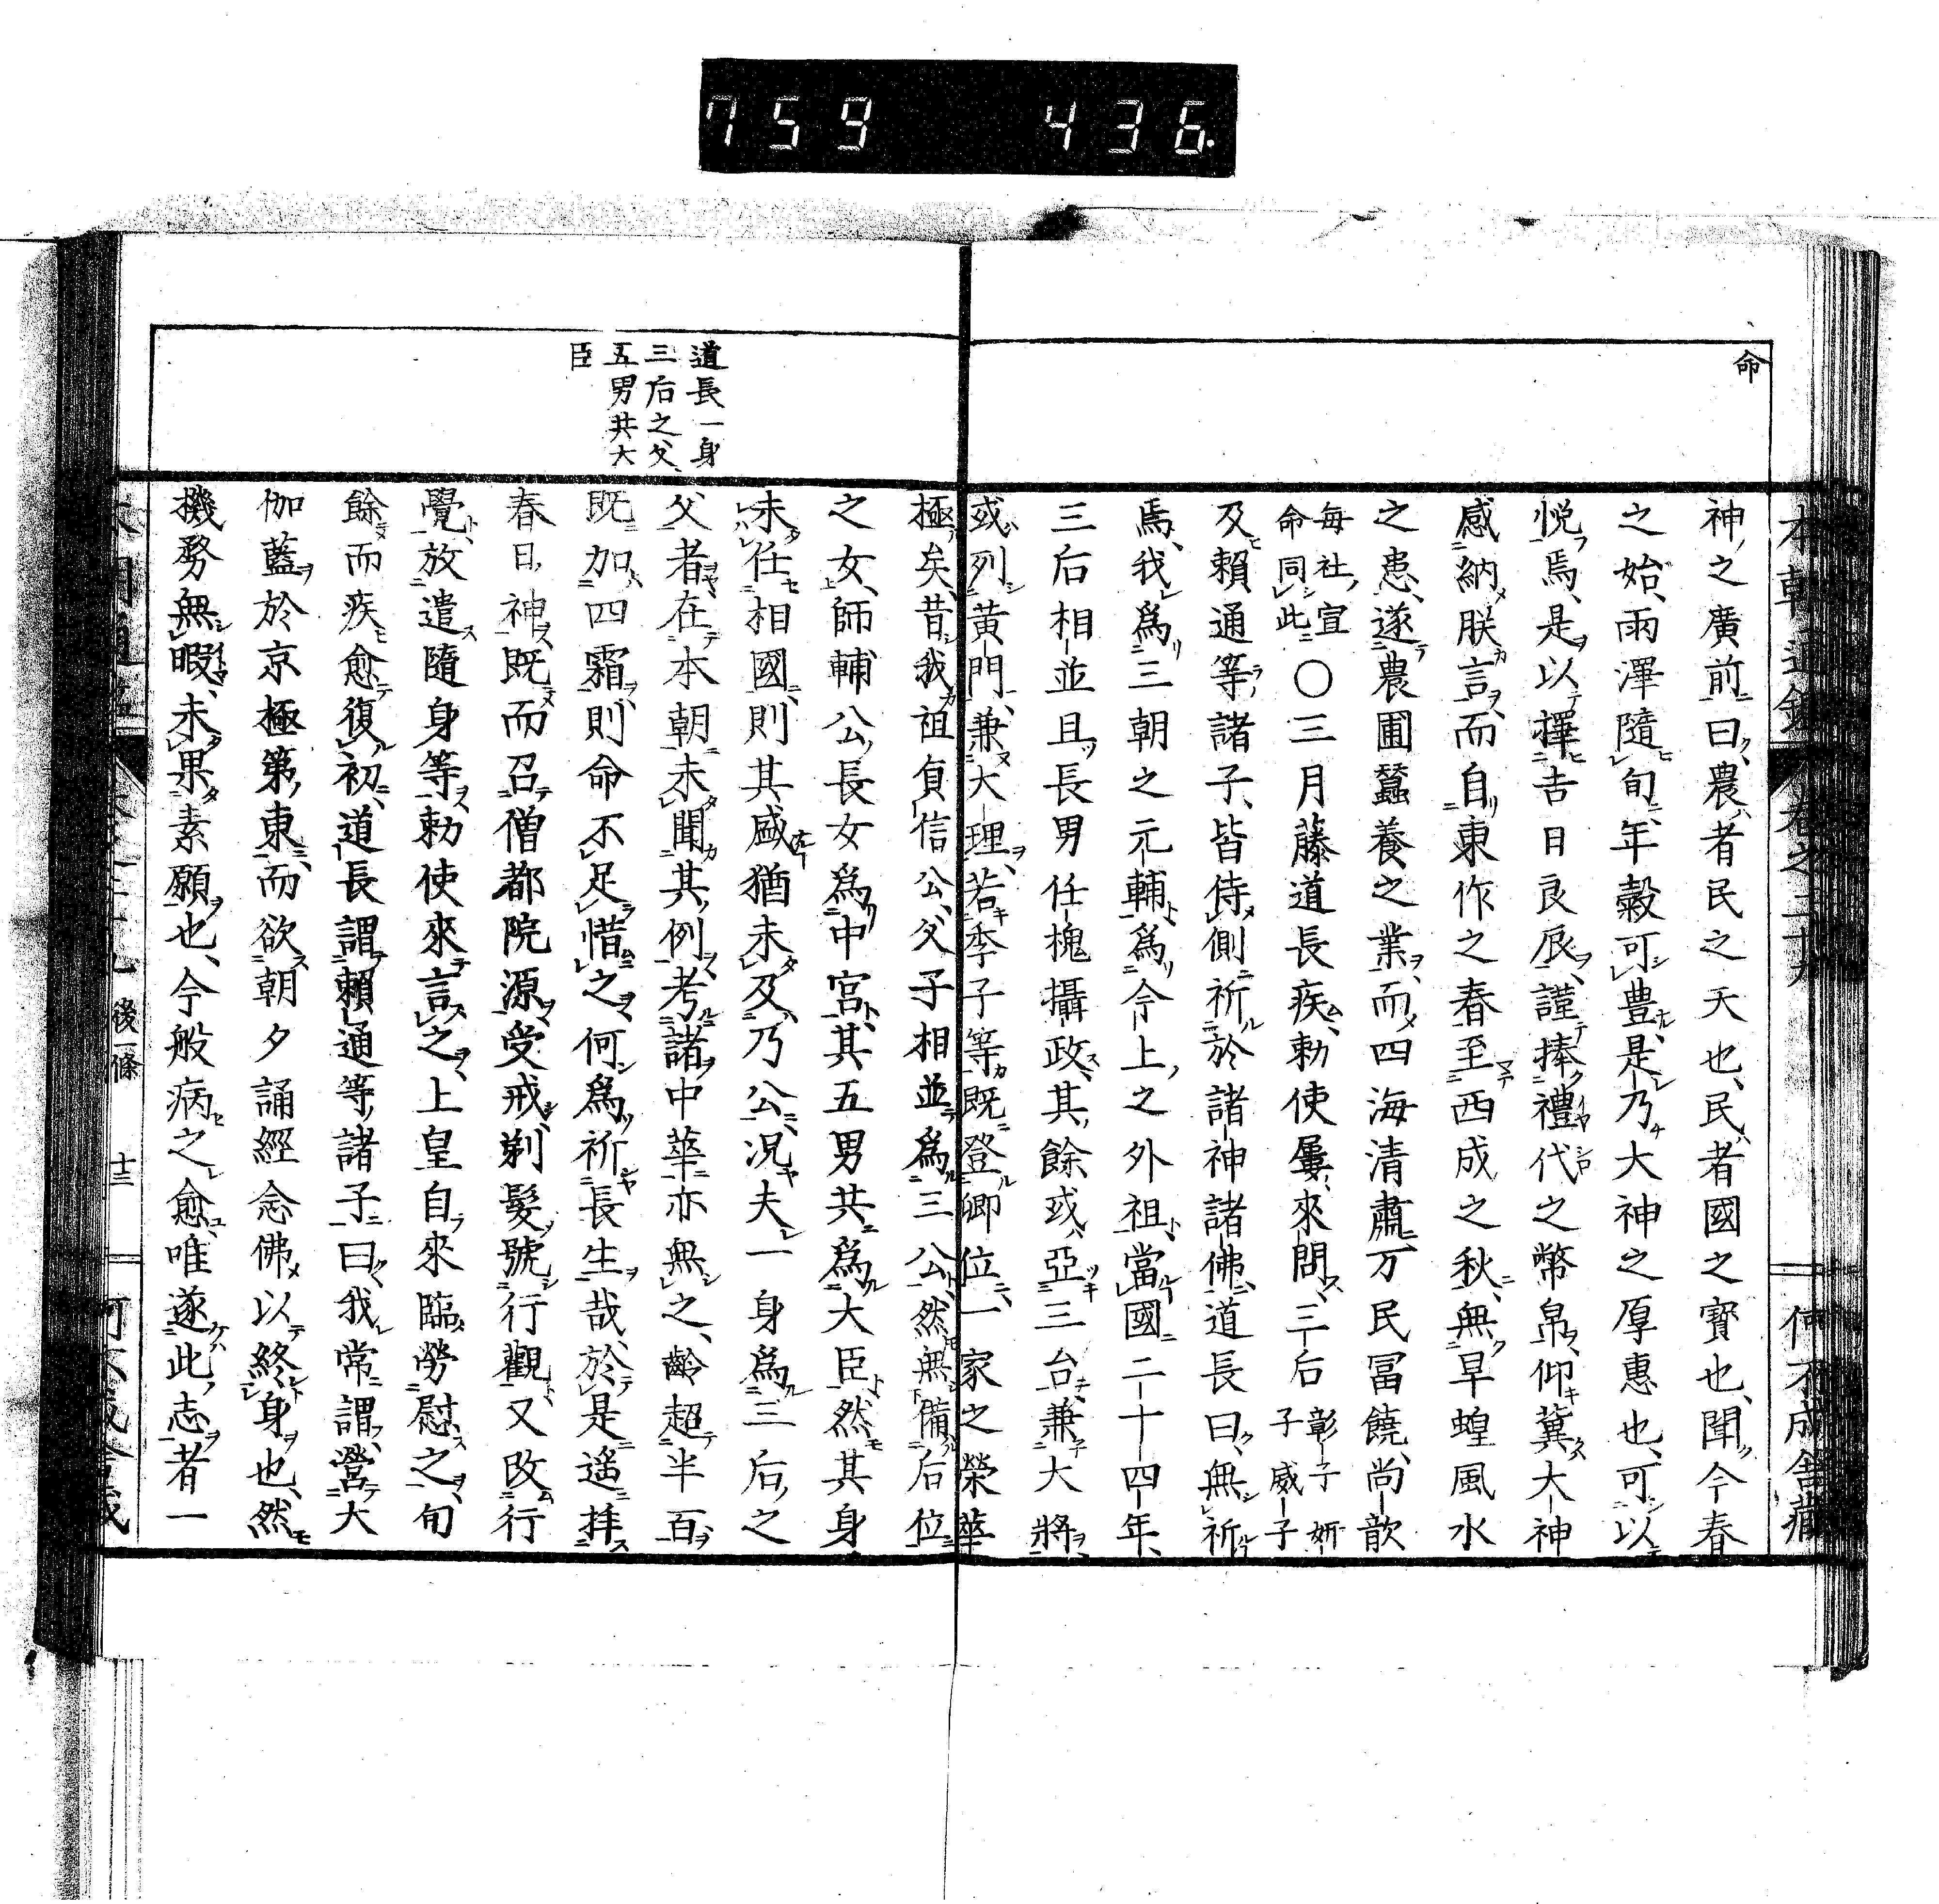 759 436.
命
神之廣前曰農者民之天也、民者國之寶也、聞今春
之始、雨澤隨旬、年穀可豊、是乃大神之厚惠也、可以
悅焉、是以擇吉日良辰、謹捧禮代之幣帛、仰冀大神
感納朕言、而自東作之春至西成之秋、無旱蝗風水
之患、遂農圃蠶養之業、而四海清肅万民冨饒、尚歆
每社宣命同此〇三月藤道長疾、勅使屢來問、三后彰子妍子威子
及賴通等諸子、皆侍側祈於諸神諸佛、道長曰、無祈
焉、我爲三朝之元輔、爲今上之外祖、當國二十四年、
三后相並且長男任槐攝政、其餘或亞三台、兼大將
或列黃門、兼大理、若季子等既登卿位、一家之榮華
道長一身
三后之父、
五男共大
臣
極矣、昔我祖貞信公、父子相並爲三公、然無備后位
之女、師輔公、長女爲中宮、其五男共爲大臣、然其身
未任相國、則其盛猶未及乃公、況夫一身爲三后之
父者、在本朝未聞其例、考諸中華亦無之、齡超半百
既加四霜、則命不足惜之、何爲祈長生哉、於是遙拝
春日神、既而召僧都院源受戒、剃髮號行觀、又改行
覺、放遣隨身等、勅使來言之、上皇自來臨勞慰之、旬
餘而疾愈復初、道長謂賴通等諸子曰、我常謂營大
伽藍於京極第東、而欲朝夕誦經念佛以終身也、然
機務無暇、未果素願也、今般病之愈唯遂此志者一
後一條
十三